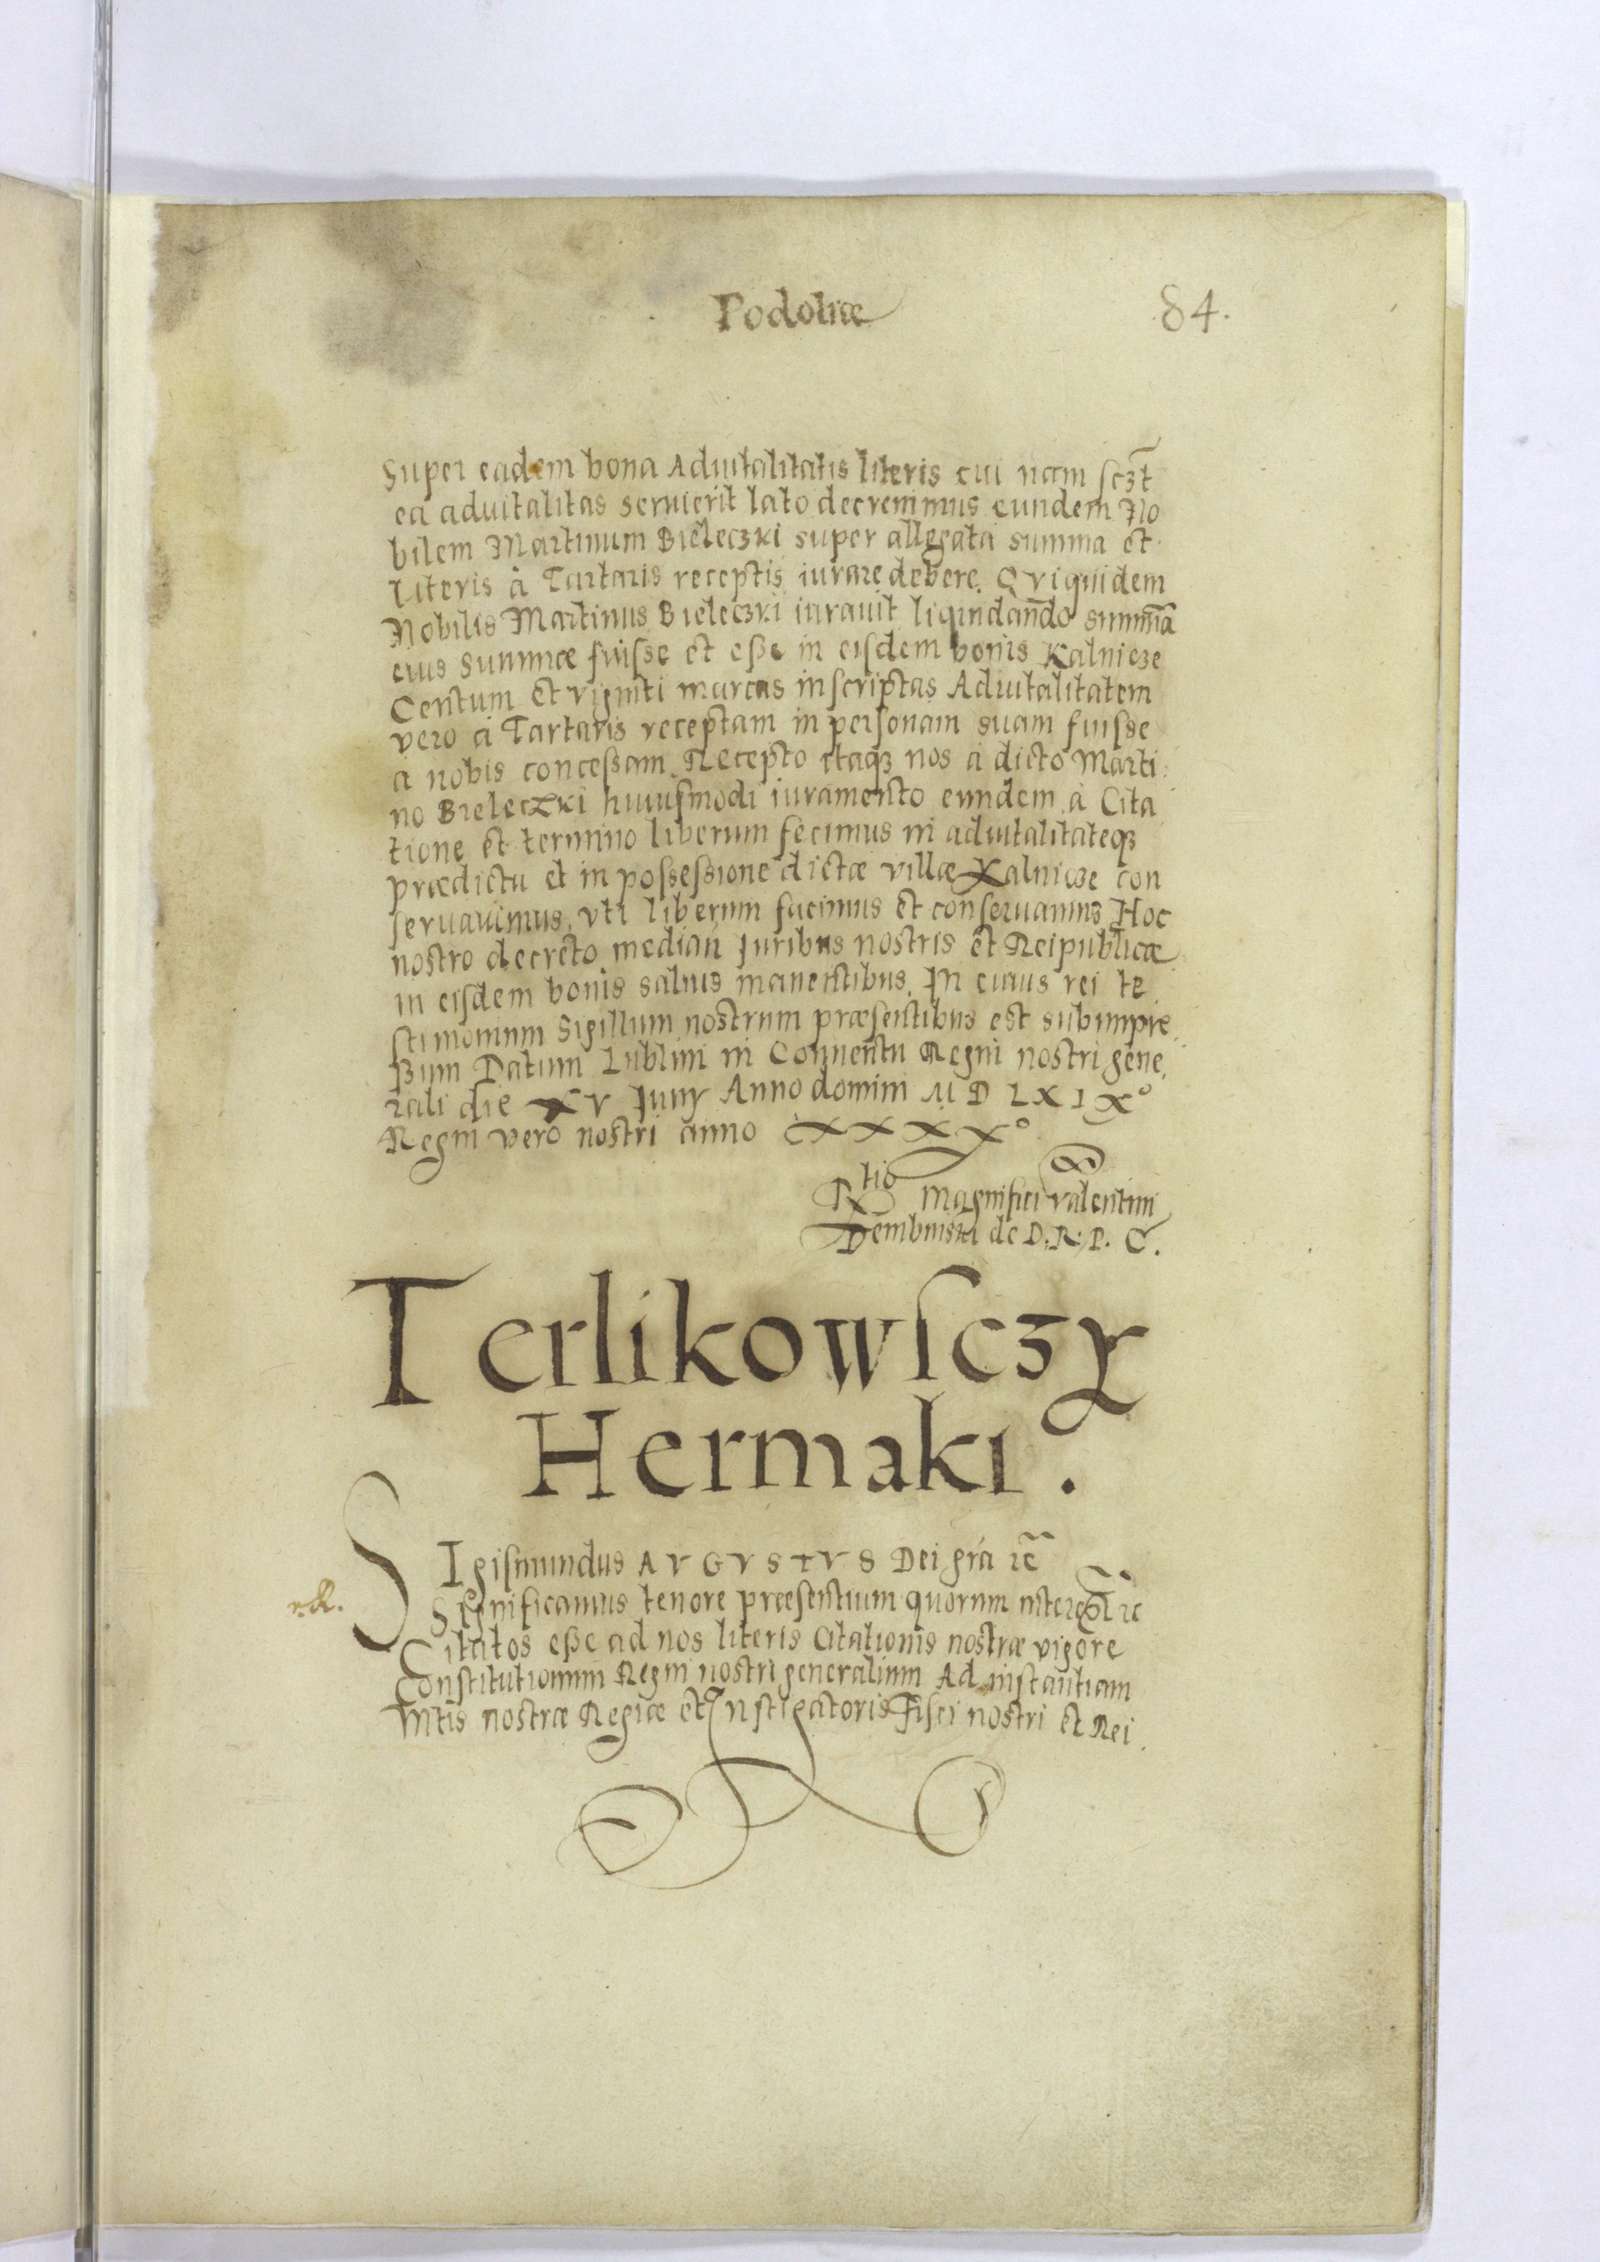 Podoliæ
84.
Super eadem bona Aduitalitatis literis cui nam sczt
ea aduitalitas seruierit lato decrenimus eundem No
bilem Martinum Bieleczki super allegata summa et
literis à Tartaris receptis iurare debere. Qvi quidem
Nobilis Martinus Bieleczki iurauit liquidando summā
eius Summæ fuisse et eße in eisdem bonis Kalnicze
Centum et viginti marcas inscriptas Aduitalitatem
vero à Tartaris receptam in personam suam fuisse
a nobis conceßam. Recepto itaqz nos à dicto Marti
no Bieleczki huiusmodi iuramento eundem à Cita
tione et termino liberum fecimus in aduitalitateqz
prædicta et in possessione dictæ villæ Kalnicze con
seruauimus, vti liberum facimus et conseruamus Hoc
nostro decreto median̄ Juribus nostris et Reipublicæ
in eisdem bonis saluis manentibus. In cuius rei te
stimonium Sigillum nostrum præsentibus est subimpre
ßum Datum Lublini in Conuentu Regni nostri gene,
rali die XV Junÿ Anno domini M D L X I X°
Regni vero nostri anno XXXX°
Rtio Magnifici Valentini
Dembinski de D. R. P. C.
Terlikowsczy
Hermaki.
SIgismundus AVGVSTVS Dei gra̅ zc̅
Significamus tenore præsentium quorum interest zc
Citatos eße ad nos literis Citationis nostræ vigore
Constitutionum Regni nostri generalium Ad instantiam
Mtis nostræ Regiæ et Instigatoris Fisci nostri et Rei